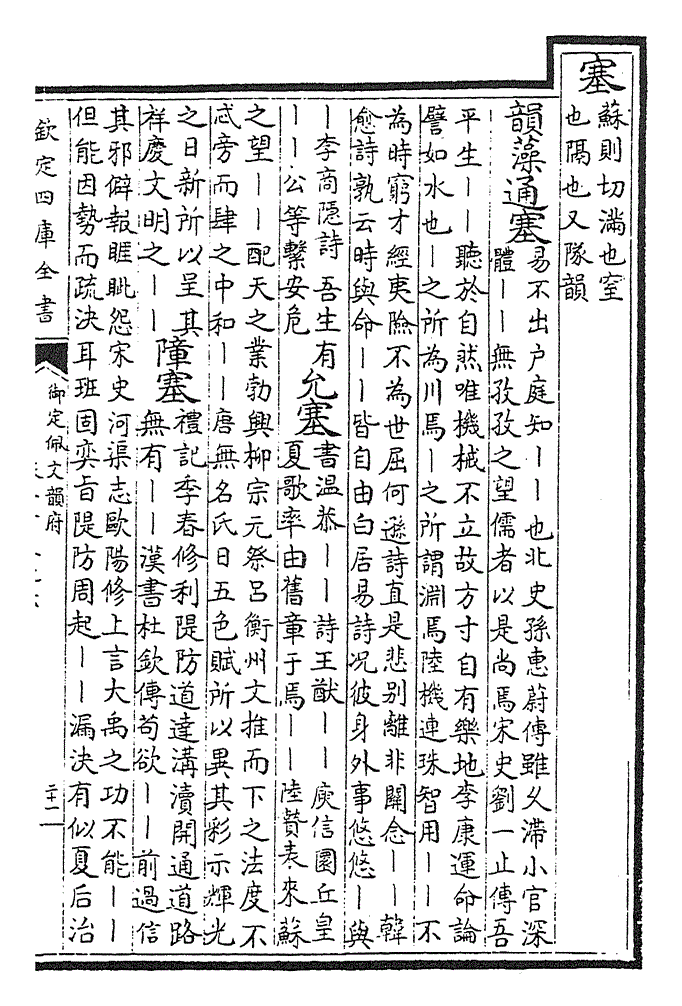 塞
蘇則切滿也窒
也隔也又隊韻
韻藻通塞
易不出户庭知丨丨也北史孫惠蔚傳雖乆滯小官深
體丨丨無孜孜之望儒者以是尚焉宋史劉一止傳吾
平生丨丨聽於自然唯機械不立故方寸自有樂地李康運命論
譬如水也丨之所為川焉丨之所謂淵焉陸機連珠智用丨丨不
為時窮才經夷險不為世屈何遜詩直是悲别離非關念丨丨韓
愈詩孰云時與命丨丨皆自由白居易詩况彼身外事悠悠丨與
丨李商隠詩吾生有
丨丨公等繫安危
允塞
書温恭丨丨詩王猷丨丨庾信圜丘皇
夏歌率由舊章于焉丨丨陸贄表來蘇
之望丨丨配天之業勃興柳宗元祭呂衡州文推而下之法度不
忒旁而肆之中和丨丨唐無名氏日五色賦所以異其彩示輝光
之日新所以呈其
祥慶文明之丨丨
障塞
禮記季春修利隄防道達溝瀆開通道路
無有丨丨漢書杜欽傳苟欲丨丨前過信
其邪僻報睚眦怨宋史河渠志歐陽修上言大禹之功不能丨丨
但能因勢而疏決耳班固奕旨隄防周起丨丨漏決有似夏后治
欽定四庫全書
御定佩文韻府